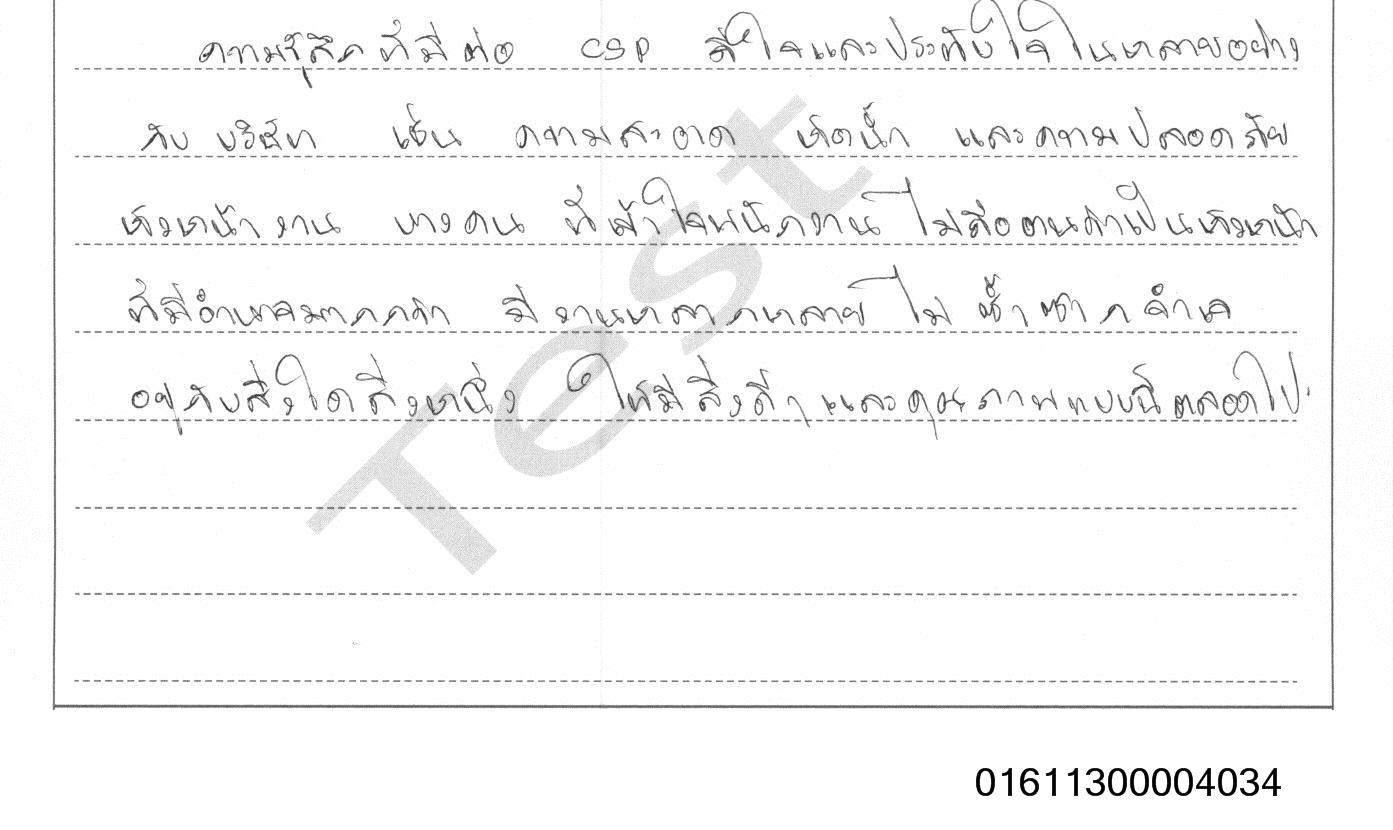 ความรู้สึกที่มีต่อ CSP ดีใจและประทับใจในหลายอย่าง
กับ บริษัท เช่น ความสะอาด ห้องน้ำ และความปลอดภัย
หัวหน้างาน บางคน ที่เข้าใจพนักงาน ไม่ถือตนว่าเป็นหัวหน้า
ที่มีอำนาจมากกว่า มีงานหลากหลาย ไม่ ซ้ำซาก จำเจ
อยู่กับสิ่งใดสิ่งหนึ่ง ให้มีสิ่งดีๆ และคุณภาพแบบนี้ตลอดไป.
Test
01611300004034